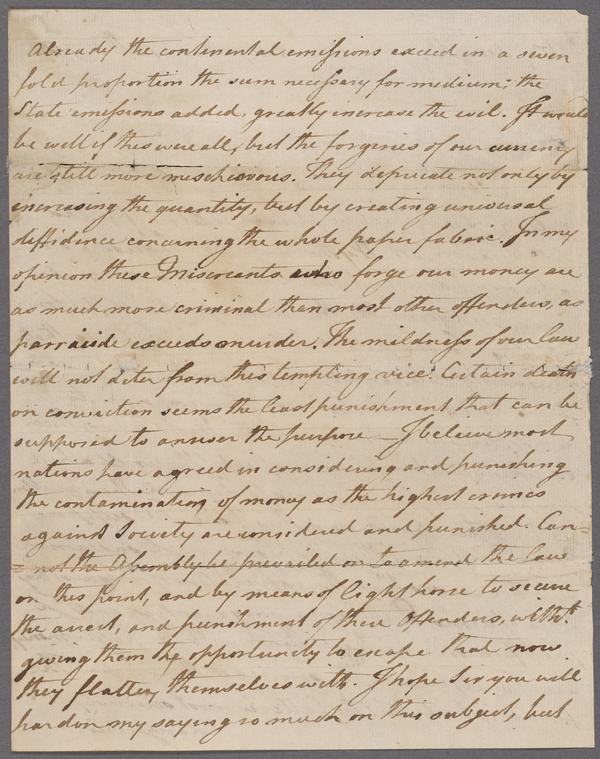 Already the continental emissions exceed in a seven
fold proportion the sum necessary for medium; the
State emissions added, greatly increase the evil. It would
be well if this were all, but the forgeries of our currency
are still more mischievous. They depreciate not only by
increasing the quantity, but by creating universal
diffidence concerning the whole paper fabric. In my
opinion these Miscreants who forge our money are
as much more criminal than most other offenders, as
parricide exceeds murder. The mildness of our law
will not deter from this tempting vice. Certain death
on conviction seems the least punishment that can be
supposed to answer the purpose — I believe most
nations have agreed in considering and punishing
the contamination of money as the highest crimes
against Society are considered and punished. Can=
=not the Assembly be prevailed on to amend the law
on this point, and by means of light horse to secure
the arrest, and punishment of these Offenders, witht.
giving them the opportunity to escape that now
they flatter themselves with. I hope Sir you will
pardon my saying so much on this subject, but